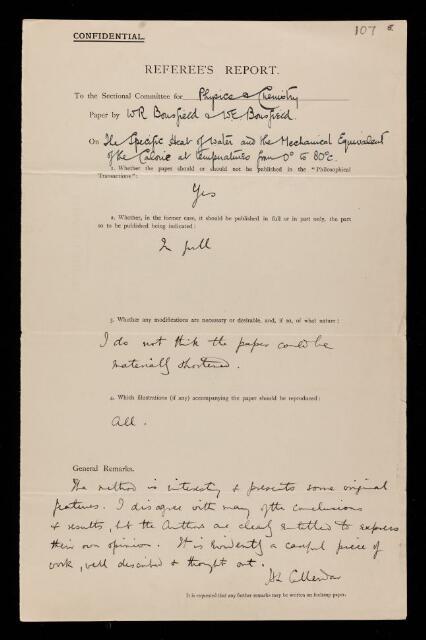 107
CONFIDENTIAL.
REFEREE'S REPORT.
To the Sectional Committee for Physics & Chemistry
Paper by WR Bousfield & WE Bousfield.
On The Specific Heat of Water and the Mechanical Equivalent
of the Calorie at temperatures from 0° to 80°C.
1. Whether the paper should or should not be published in the "Philosophical
Transactions":
Yes
2. Whether, in the former case, it should be published in full or in part only, the part
so to be published being indicated:
In full
3. Whether any modifications are necessary or desirable, and, if so, of what nature:
I do not think the paper could be
materially shortened.
4. Which illustrations (if any) accompanying the paper should be reproduced:
All.
General Remarks.
The method is interesting & presents some original
features. I disagree with many of the conclusions
& results, but the Authors are clearly entitled to express
their own opinion. It is evidently a careful piece of
work, well described & thought out.
HL Callendar
It is requested that any further remarks may be written on foolscap paper.